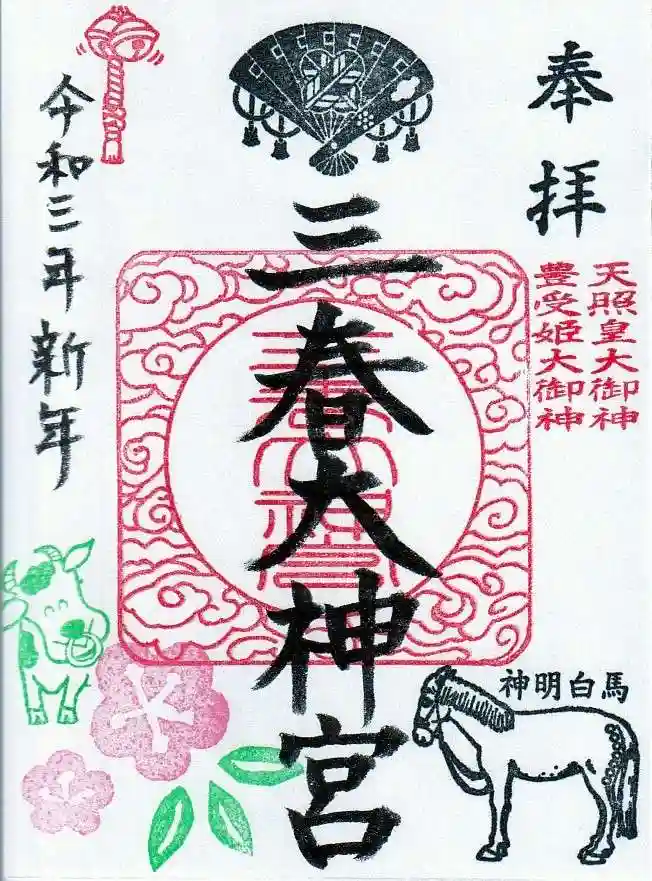 奉拝
天照皇大御神
豊受姫大御神
三春大神宮
三春大神宮
令和三年新年
神明白馬